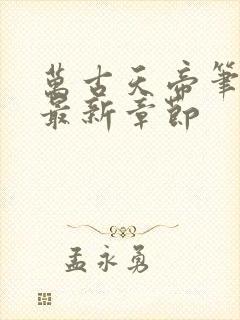 萬古天帝筆
最新章節
孟永勇